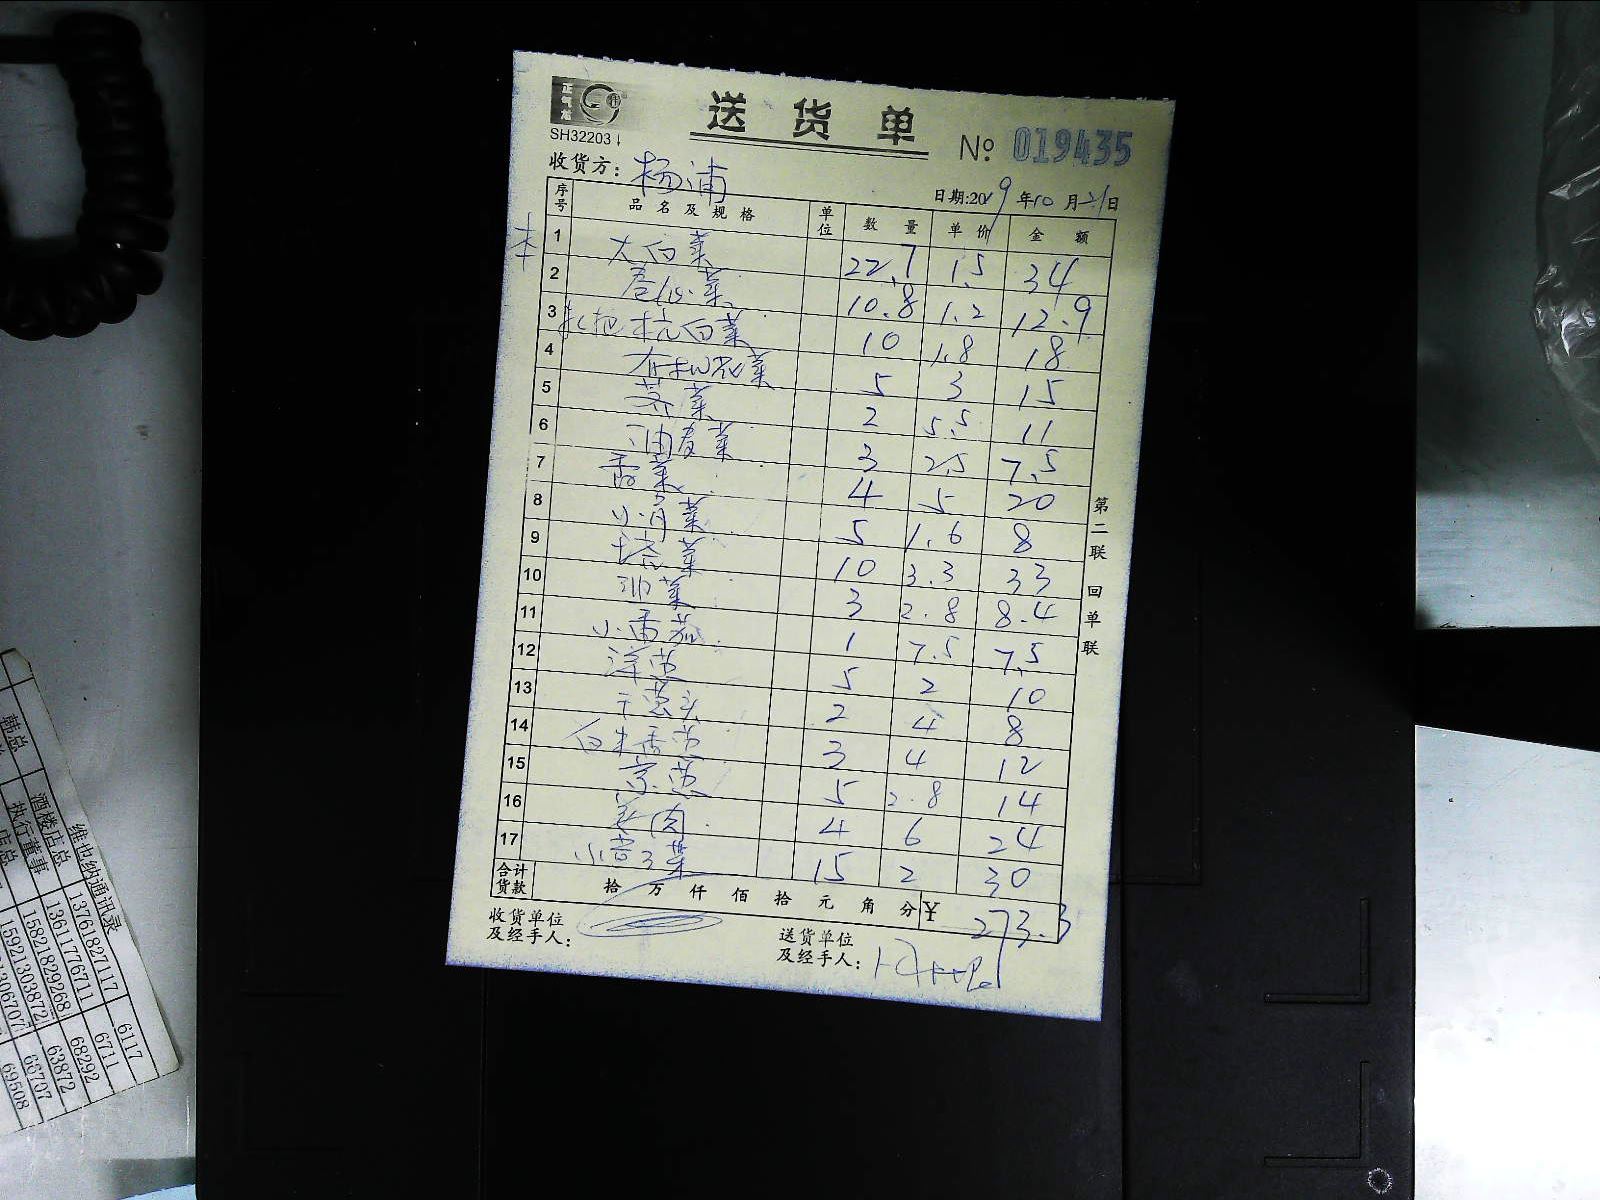 正气龙
送货单
SH32203↓
№ 019435
收货方: 杨浦
日期:2019年10月21日
序号 品名及规格 单位 数量 单价 金额
1 大白菜 22.7 1.5 34
2 卷心菜 10.8 1.2 12.9
3 扎把杭白菜 10 1.8 18
4 有机花菜 5 3 15
5 芥菜 2 5.5 11
6 油麦菜 3 2.5 7.5
7 香菜 4 5 20
8 小青菜 5 1.6 8
9 塔菜 10 3.3 33
10 菜 3 2.8 8.4
11 小番茄 1 7.5 7.5
12 洋葱 5 2 10
13 干葱头 2 4 8
14 白米香葱 3 4 12
15 京葱 5 2.8 14
16 姜肉 4 6 24
17 15 2 30
合计货款 拾万仟佰拾元角分 ¥ 273.3
收货单位及经手人:
送货单位及经手人:
第二联 回单联
韩总
酒楼店总 13761827117 6117
执行董事 13611776711 6711
店总 15821829268 68292
维也纳通讯录
63872
66707
69508